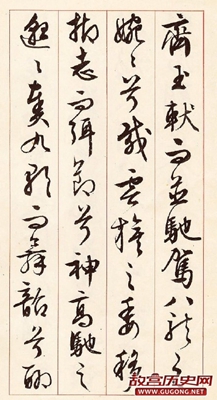 齊玉軑而並馳駕八龍之
婉々兮載雲旗之委移
抑志而弭節兮神高馳之
邈々奏九歌而舞韶兮聊
故宫历史网
WWW.GUGONG.NET